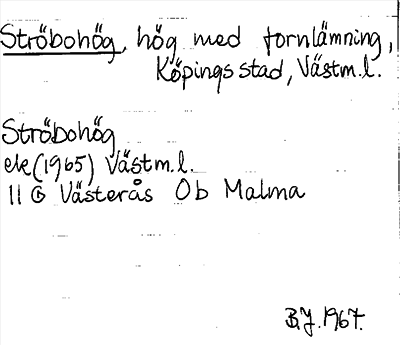 Ströbohög, hög med fornlämning,
Köpings stad, Västm.l.
Ströbohög
ek (1965) Västm.l.
11 G Västerås Ob Malma
B.J. 1967.